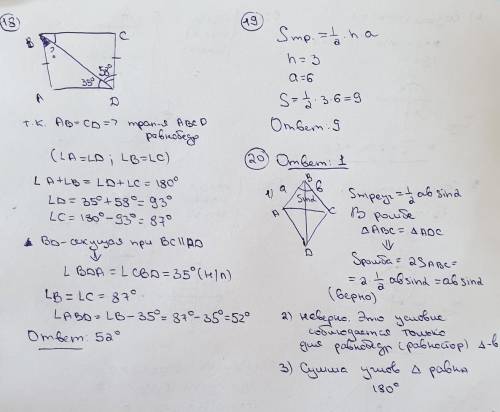 18)
B C
?
58°
35°
A D
т.к. AB = CD => трап-я ABCD
равнобедр
(∠A=∠D; ∠B=∠C)
∠A+∠B = ∠D+∠C = 180°
∠D = 35°+58° = 93°
∠C = 180°-93° = 87°
BD-секущая при BC||AD
⇓
∠BDA = ∠CBD = 35° (н/л)
∠B = ∠C = 87°
∠ABD = ∠B - 35° = 87° - 35° = 52°
Ответ: 52°
19
Sтр. = 1/2 · h a
h = 3
a = 6
S = 1/2 · 3 · 6 = 9
Ответ: 9
20) Ответ: 1
1) a B b
Sinα
A C
D
Sтреуг = 1/2 ab sinα
В ромбе
△ABC = △ADC
⇓
Sромба = 2SABC =
= 2 · 1/2 ab sinα = ab sinα
(верно)
2) Неверно. Это условие
соблюдается только
для равнобедр (равностор) △-в
3) Сумма углов △ равна
180°